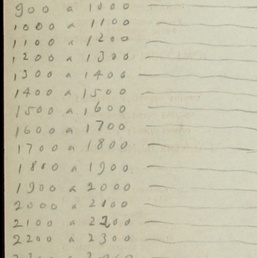 900 a 1000
1000 a 1100
1100 a 1200
1200 a 1300
1300 a 1400
1400 a 1500
1500 a 1600
1600 a 1700
1700 a 1800
1800 a 1900
1900 a 2000
2000 a 2100
2100 a 2200
2200 a 2300